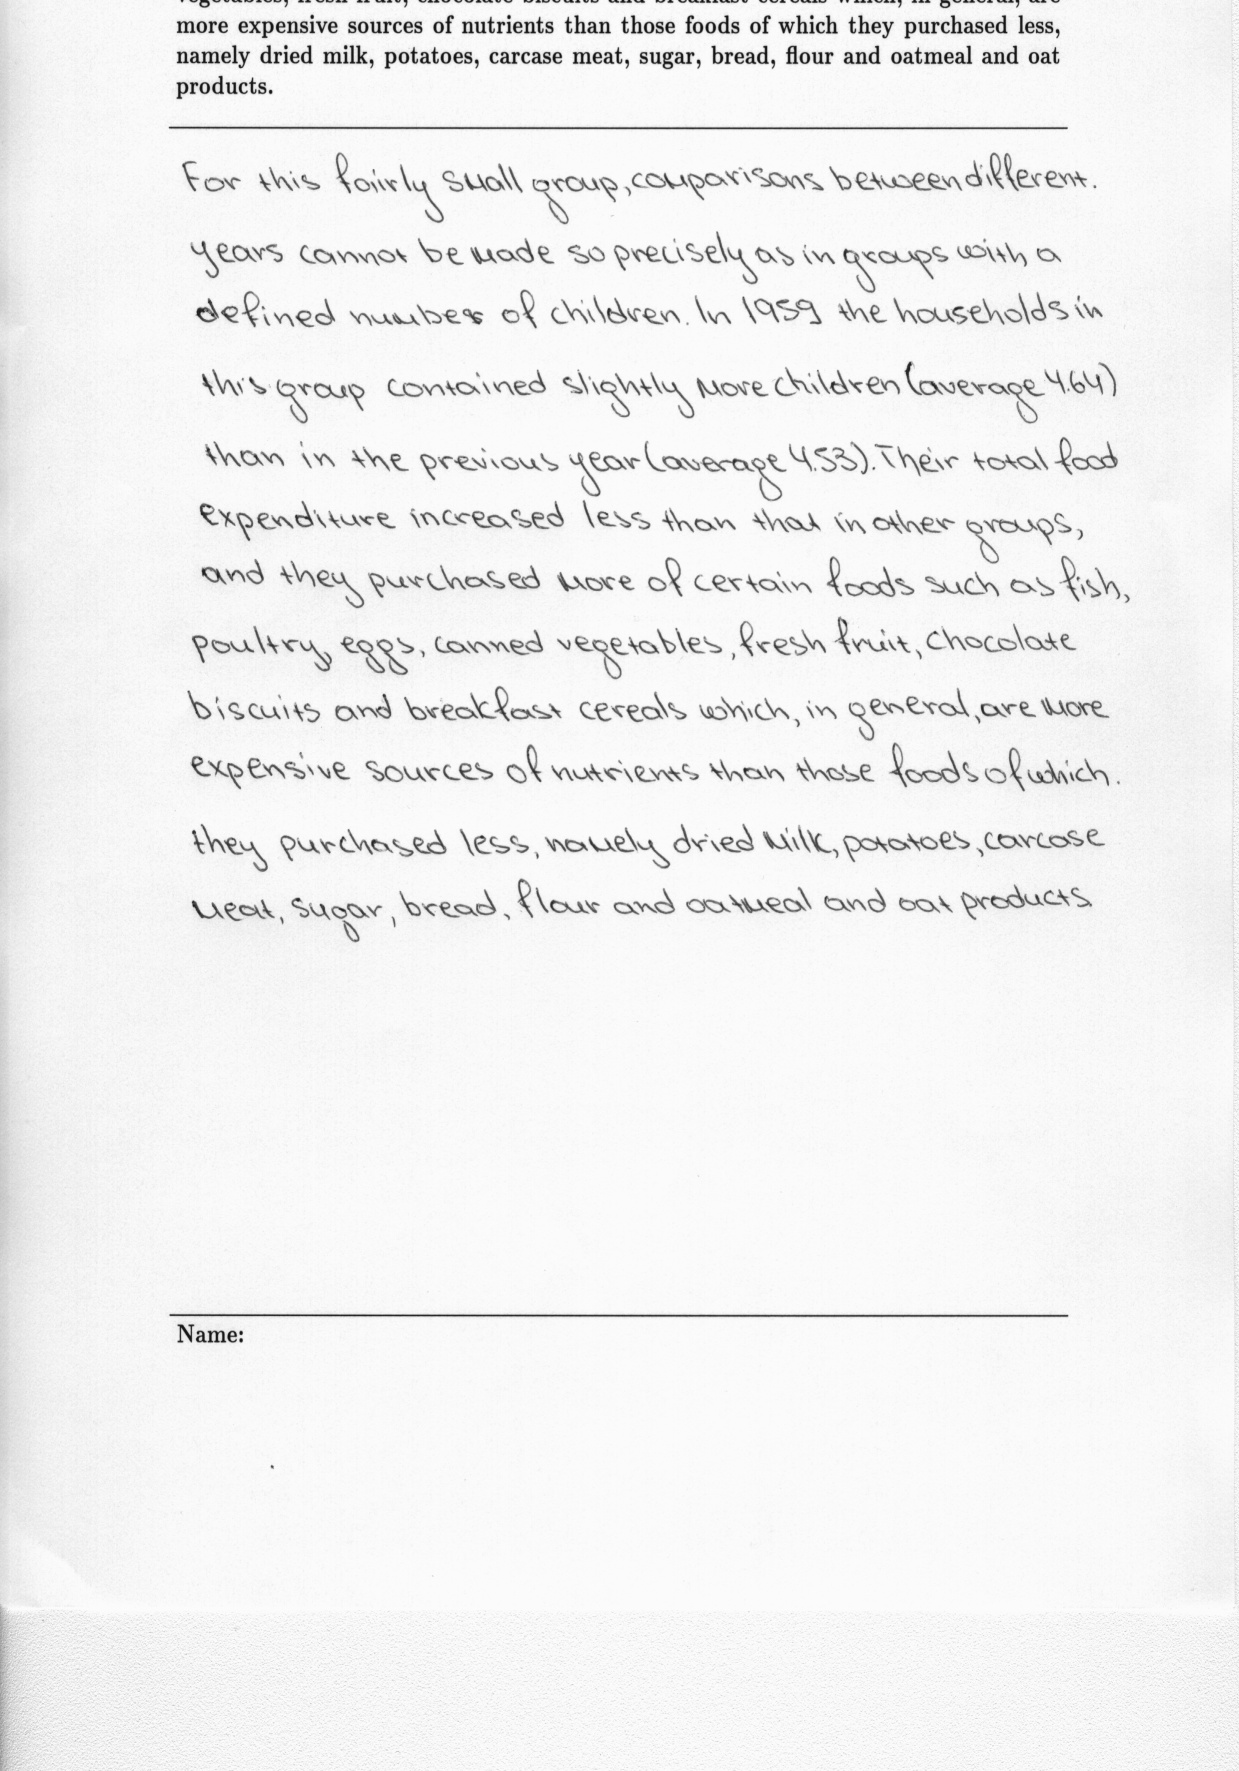 vegetables, fresh fruit, chocolate biscuits and breakfast cereals which, in general, are
more expensive sources of nutrients than those foods of which they purchased less,
namely dried milk, potatoes, carcase meat, sugar, bread, flour and oatmeal and oat
products.
For this fairly small group, comparisons between different.
years cannot be made so precisely as in groups with a
defined number of children. In 1959 the households in
this group contained slightly more children (average 4.64)
than in the previous year (average 4.53). Their total food
expenditure increased less than that in other groups,
and they purchased more of certain foods such as fish,
poultry, eggs, canned vegetables, fresh fruit, chocolate
biscuits and breakfast cereals which, in general, are more
expensive sources of nutrients than those foods of which.
they purchased less, namely dried milk, potatoes, carcase
meat, sugar, bread, flour and oatmeal and oat products
Name: